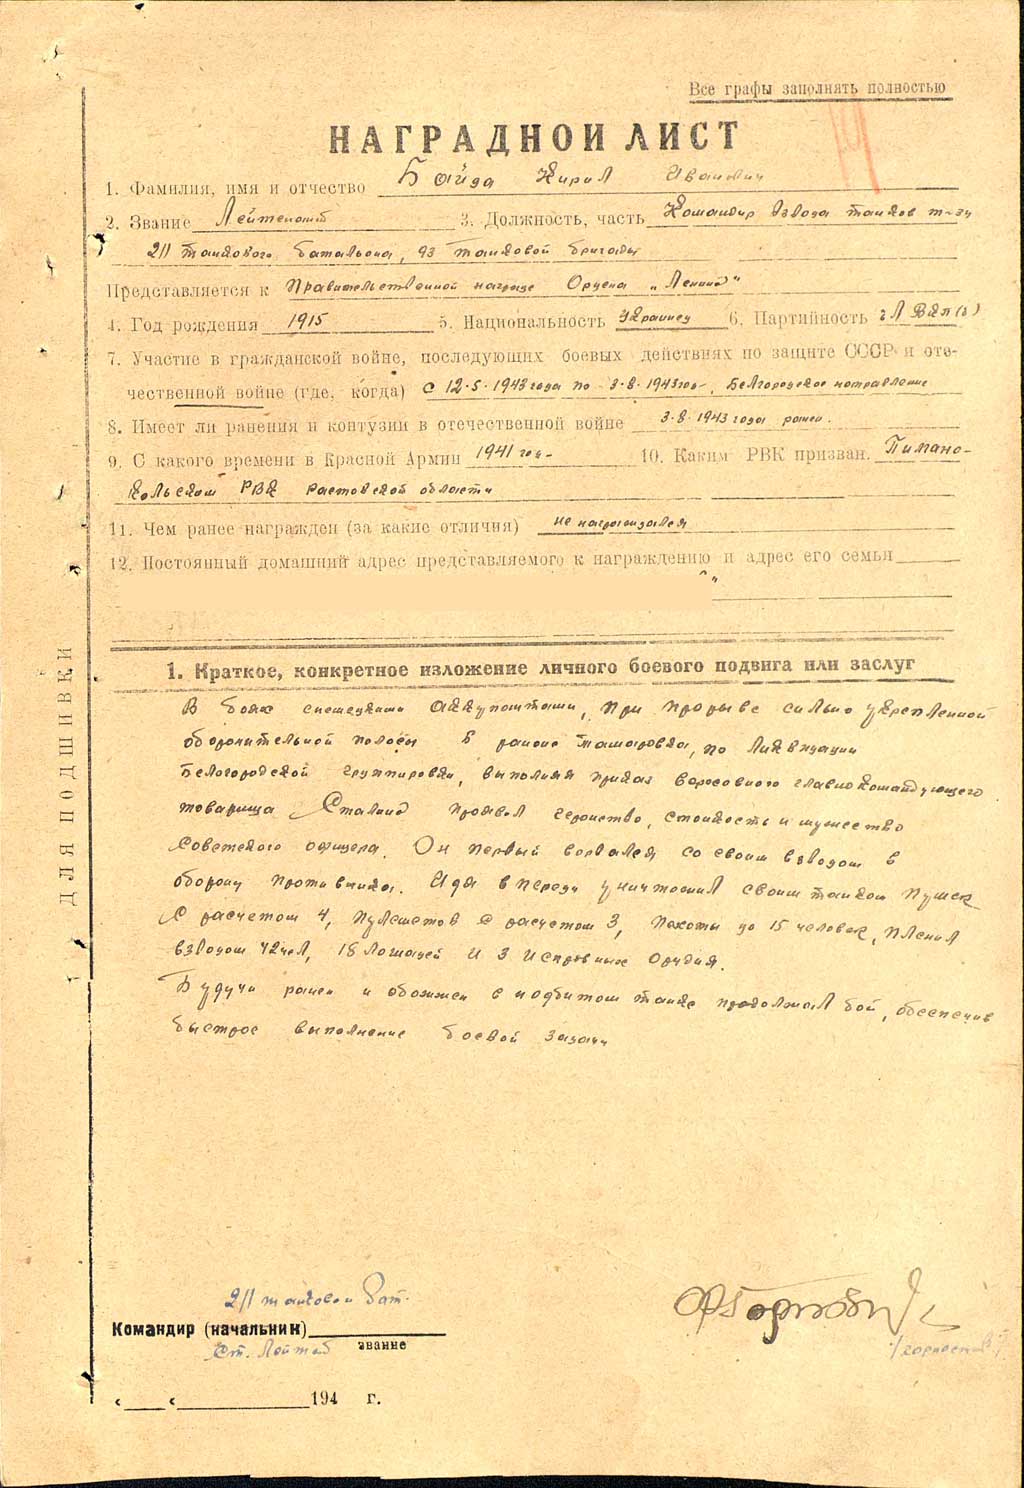 Все графы заполнять полностью
НАГРАДНОЙ ЛИСТ
1. Фамилия, имя и отчество Байда Кирил Иванович
2. Звание Лейтенант 3. Должность, часть Командир взвода танков т-34
211 танкового батальона, 93 танковой бригады
Представляется к Правительственной награде Ордена „Ленина"
4. Год рождения 1915 5. Национальность Украинец 6. Партийность ВКП(б)
7. Участие в гражданской войне, последующих боевых действиях по защите СССР и оте-
чественной войне (где, когда) с 12.5.1943 года по 3.8.1943 год, Белгородское направление
8. Имеет ли ранения и контузии в отечественной войне 3.8.1943 года ранен.
9. С какого времени в Красной Армии 1941 год 10. Каким РВК призван.
РВК Ростовской области
11. Чем ранее награжден (за какие отличия) не награждался
12. Постоянный домашний адрес представляемого к награждению и адрес его семьи
1. Краткое, конкретное изложение личного боевого подвига или заслуг
В боях снемецкими аккупантами, при прорыве сильно укрепленной
оборонительной полосы в районе Тамаровка, по ликвидации
Белогородской группировки, выполняя приказ верховного главнокомандующего
товарища Сталина проявил героиство, стойкость и мужество
Советского офицера. Он первый ворвался со своим взводом в
оборону противника. Идя в переди уничтожил своим танком пушек
с расчетом 4, пулеметов с расчетом 3, пехоты до 15 человек, пленил
взводом 42 чел, 18 лошадей и 3 исправных орудия.
Будучи ранен и обожжен в подбитом танке продолжал бой, обеспечив
быстрое выполнение боевой задачи
211 танковый бат.
Командир (начальник)
Ст. Лейтен
звание
« « 194 г.
ДЛЯ ПОДШИВКИ